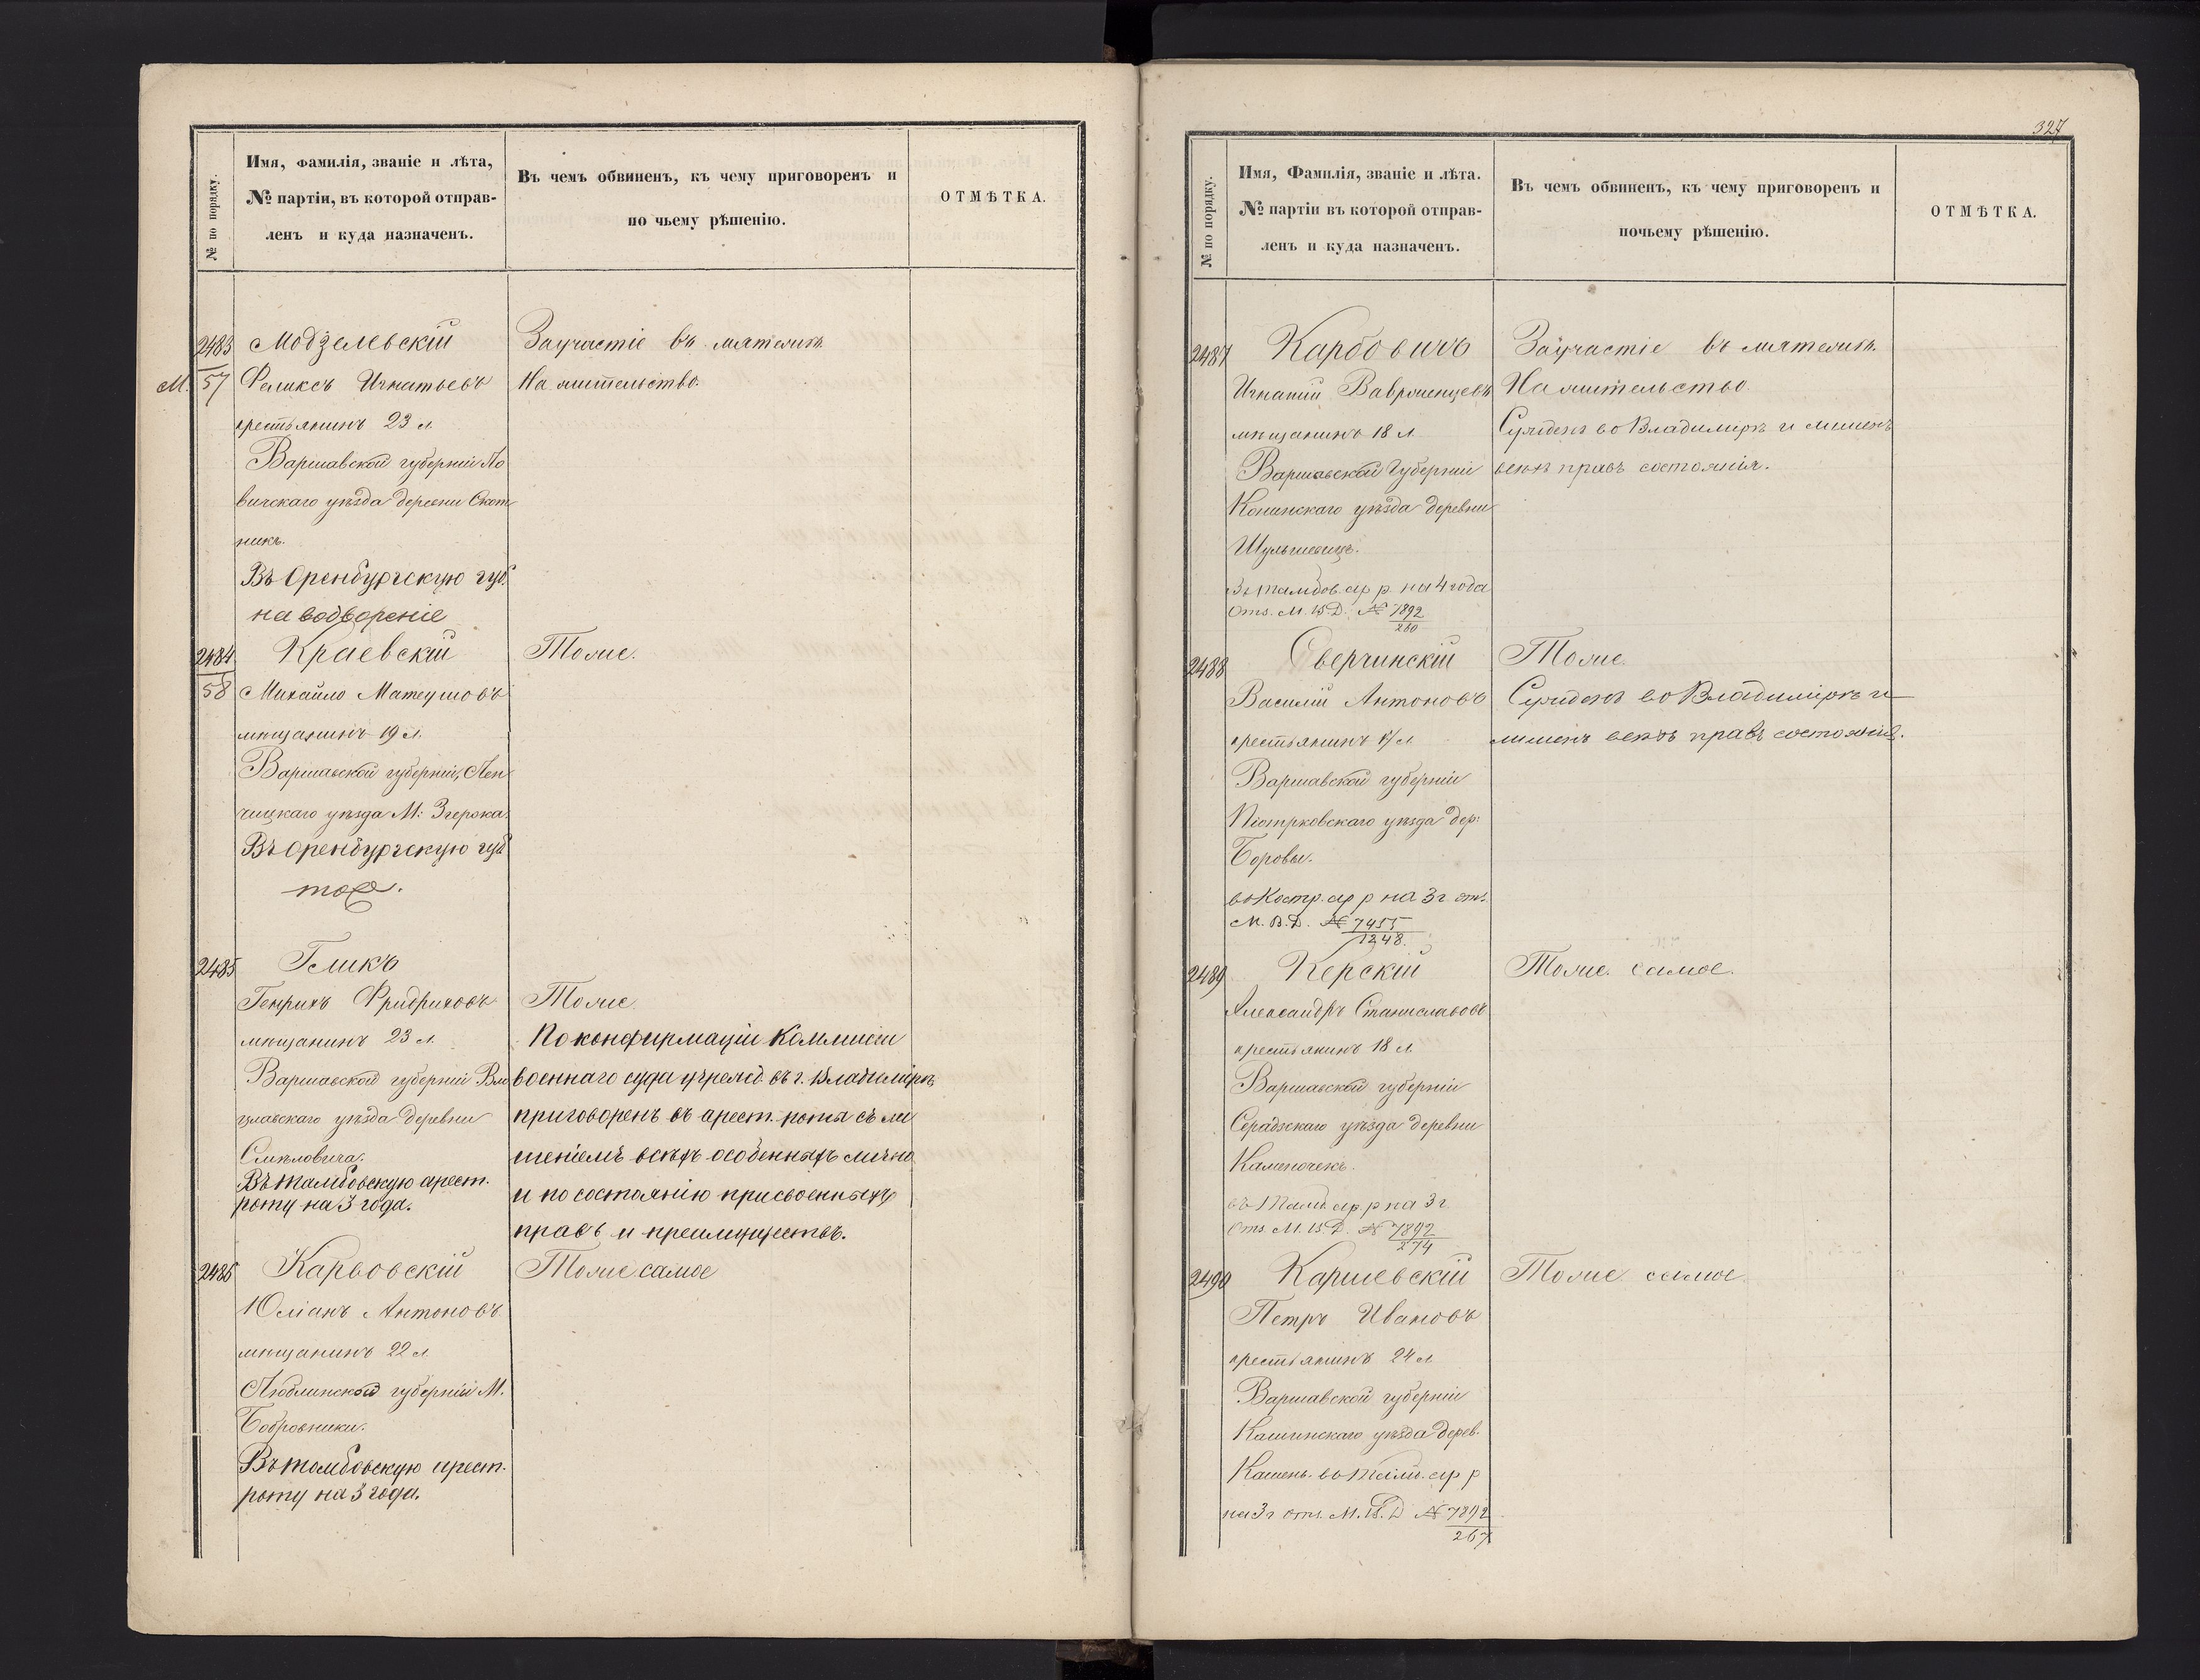 № по порядку.
Имя, фамилія, званіе и лѣта,
№ партіи, въ которой отправ-
ленъ и куда назначенъ.
Въ чемъ обвиненъ, къ чему приговоренъ и
по чьему рѣшенію.
ОТМѢТКА.
2483
М. 57
Модзелевскій
Феликсъ Игнатьевъ
крестьянинъ 23 л.
Варшавской губерніи Ло
вичскаго уѣзда деревни Скот
никъ.
Въ Оренбургскую губ.
на водвореніе
За участіе въ мятежѣ.
На жительство.
2484
58
Краевскій
Михайло Матеушовъ
мѣщанинъ 19 л.
Варшавской губерніи, Лен
чицкаго уѣзда М: Згержа.
Въ Оренбургскую губ
тоже.
Тоже.
2485
Гликъ
Генрихъ Фридриховъ
мѣщанинъ 23 л.
Варшавской губерніи Вло
цлавскаго уѣзда деревни
Въ Тамбовскую арест.
роту на 3 года.
Тоже
По конфирмаціи Коммисіи
военнаго суда учрежд. въ г. Владимірѣ
приговоренъ въ арест. роты съ ли
шеніемъ всѣхъ особенныхъ лично
и по состоянію присвоенныхъ
правъ и преимуществъ.
2486
Карвовскій
Юліанъ Антоновъ
мѣщанинъ 22 л.
Люблинской губерніи М.
Бобровники.
Въ Тамбовскую арест.
роту на 3 года.
Тоже самое
327
№ по порядку.
Имя, Фамилія, званіе и лѣта.
№ партіи въ которой отправ-
ленъ и куда назначенъ.
Въ чемъ обвиненъ, къ чему приговоренъ и
почьему рѣшенію.
ОТМѢТКА.
2487
Карбовичъ
Игнатій Вавржинцевъ
мѣщанинъ 18 л.
Варшавской Губерніи
Конинскаго уѣзда деревни
Въ Тамбов. ар р. на 4 года
Отз. М. В. Д. № 7892
260
За участіе въ мятежѣ.
На жительство.
Сужденъ во Владимірѣ и лишенъ
всѣхъ правъ состоянія.
2488
Сверчинскій
Василій Антоновъ
крестьянинъ 17 л.
Варшавской губерніи
Піотрковскаго уѣзда дер:
Боровы.
въ Костр. ар р на 3 г. отз.
М. В. Д. № 7455
1248.
Тоже.
Сужденъ во Владимірѣ и
лишенъ всѣхъ правъ состоянія.
2489
Керскій
Александръ Станиславовъ
крестьянинъ 18 л.
Варшавской губерніи
Серадзскаго уѣзда деревни
въ Тамб. ар р на 3 г.
Отз М. В. Д. № 7892
274
Тоже самое.
2490
Каршевскій
Петръ Ивановъ
крестьянинъ 24 л.
Варшавской губерніи
уѣзда дерев.
въ Тамб. ар р
на 3 г отз. М. В. Д № 7892
267
Тоже самое.